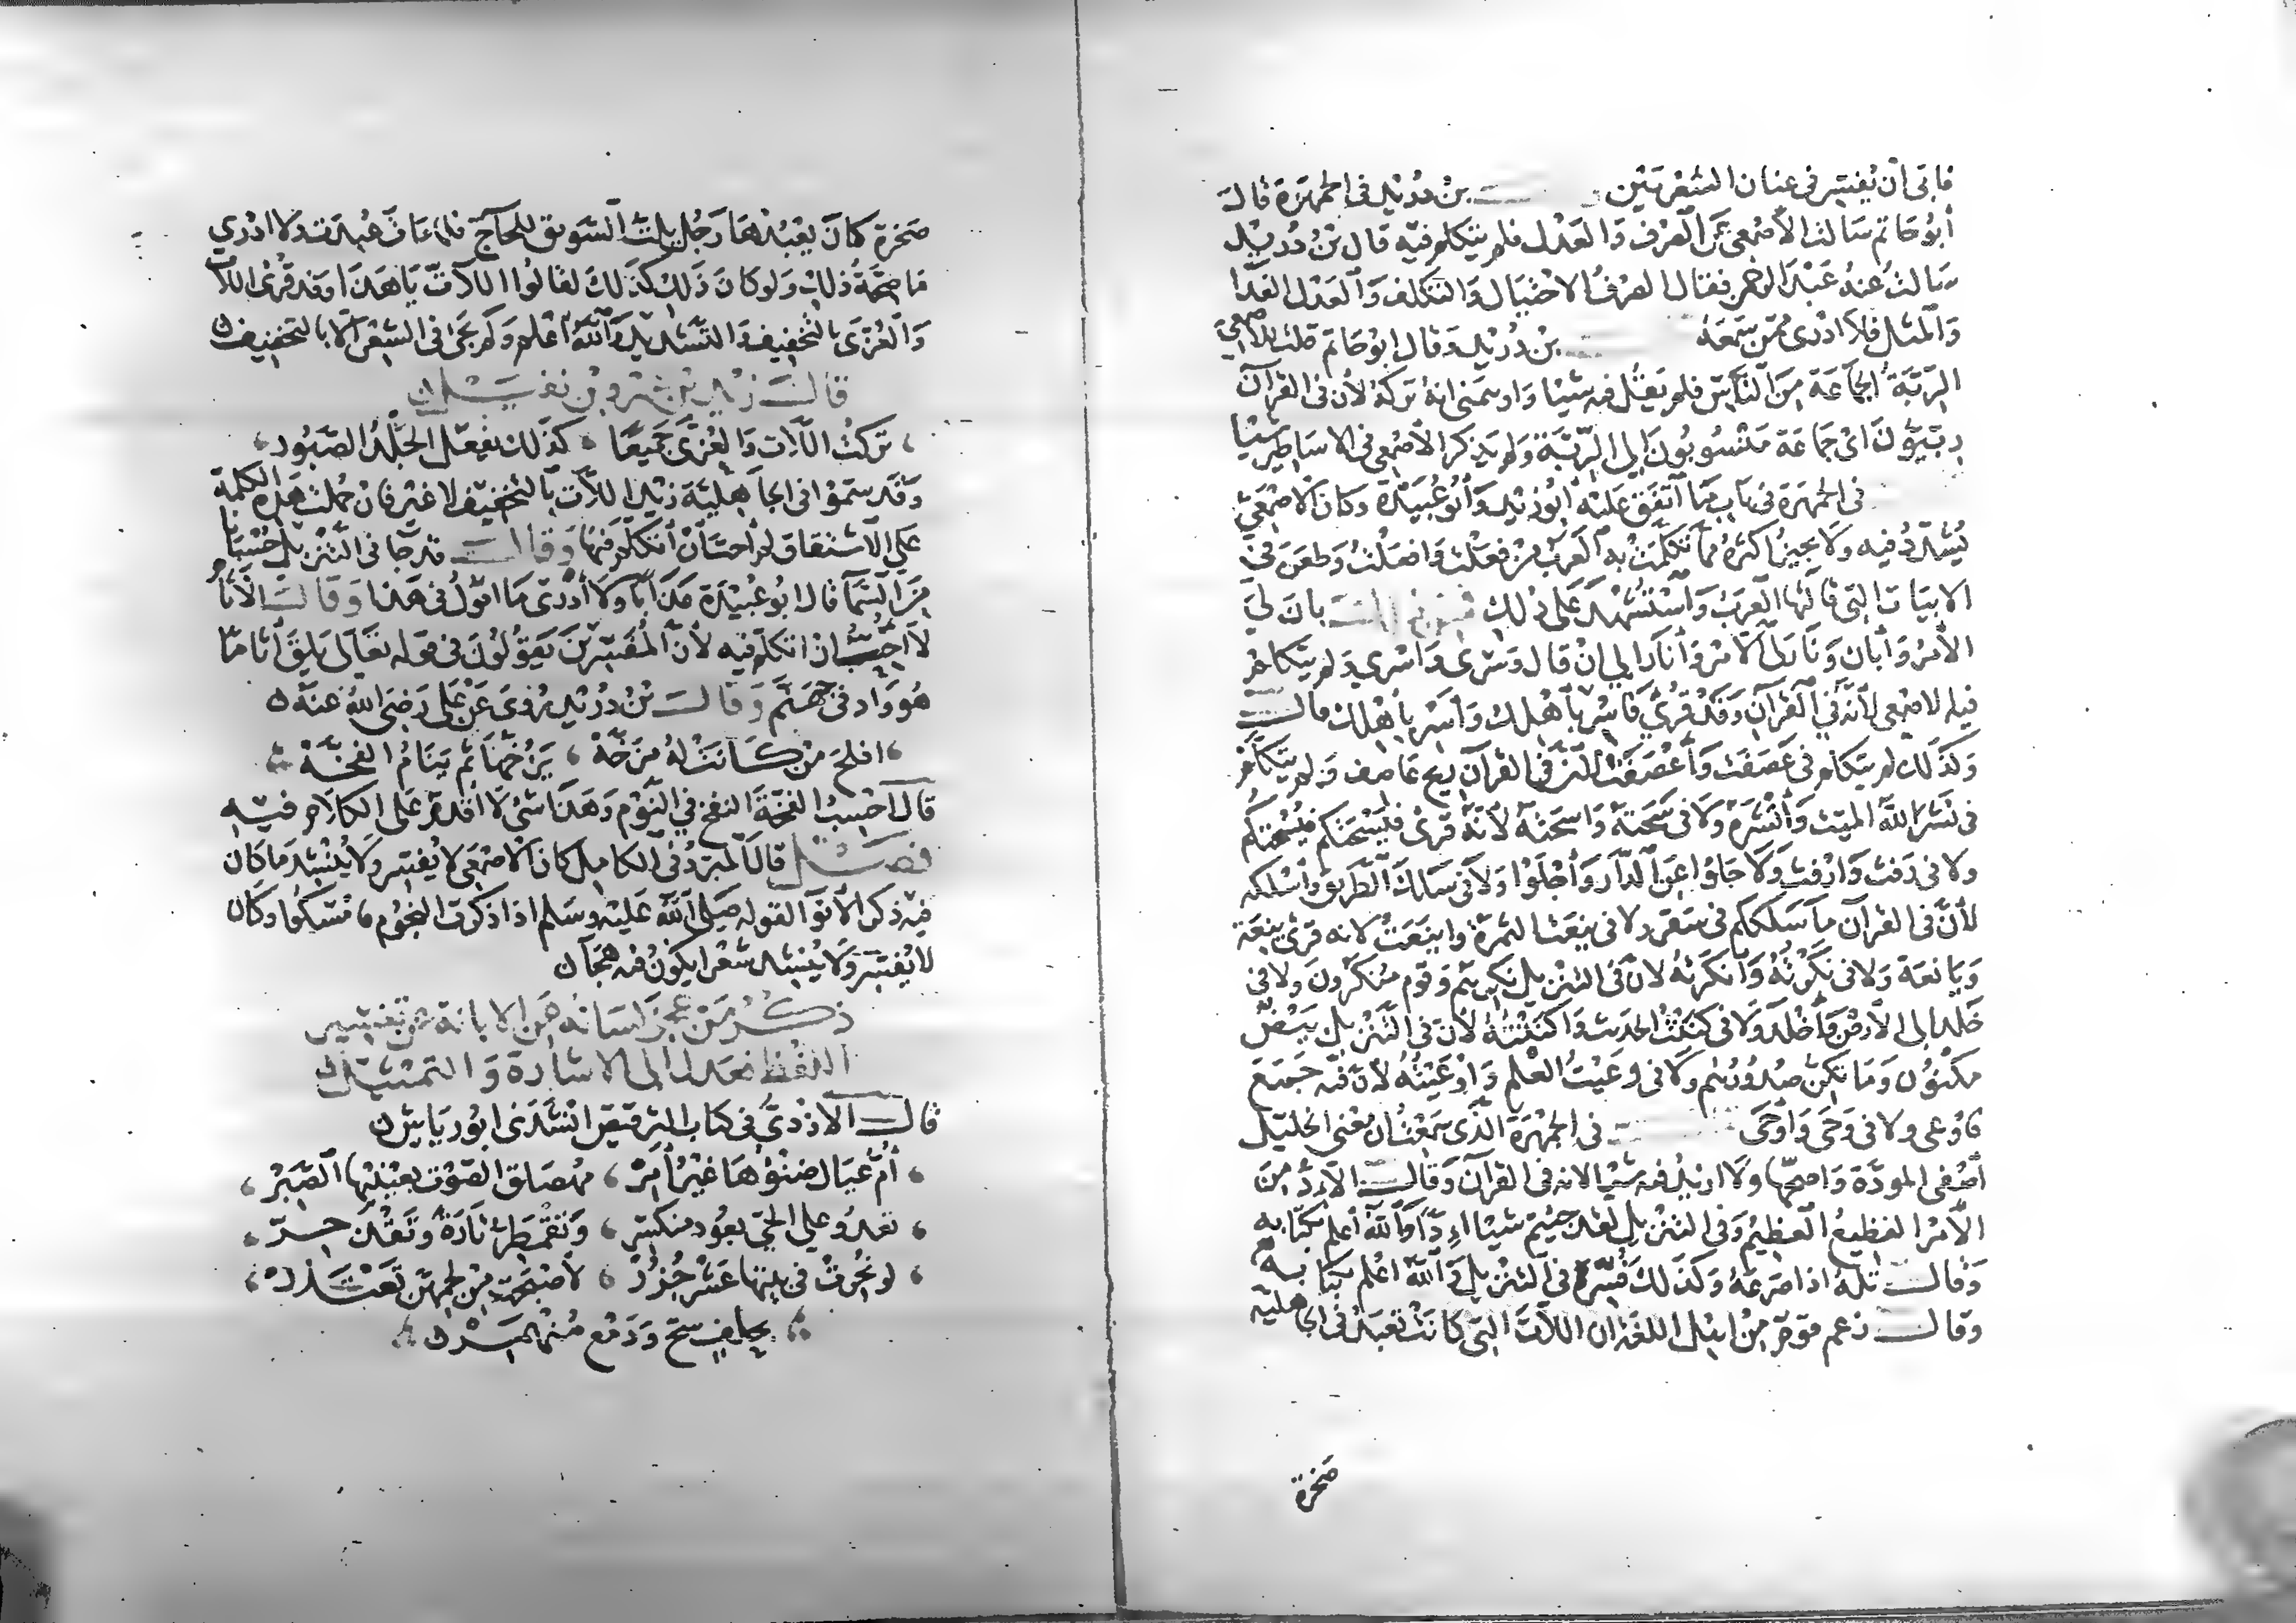 فابى أن يفسر فى عنان الشعريين بن دريد فى الجمهرة قال
أبو حاتم سالت الأصمعي عن الصرف والعدل فلم يتكلم فيه قال بن دريد
سالت عنه عبد الرحمن فقال الصرف الاحتيال والتكلف والعدل الفدا
والمثل فلا ادرى ممن سمعه بن دريد وقال ابو حاتم قلت للأصمعي
الربة الجماعة من الناس فلم يقل فيه شيئا واوهمنى انه تركه لأن فى القرآن
ربيون اى جماعة منسوبون الى الربة ولم يذكر الأصمعي فى الاساطير شيئا
فى الجمهرة فى باب ما اتفق عليه ابو زيد وابو عبيدة وكان الاصمعي
يشدد فيه ولا يجيز اكثره مما تكلمت به العرب من فعلت وافعلت وطعن فى
الابيات التى قالتها العرب واستشهد على ذلك بان لي
الأمر وأبان ونار لى الأمر وأنار الي ان قال وسرى واسري ولم يتكلم
فيه الاصمعي لأنه فى القرآن وقد قرئ فاسر بأهلك وأسر بأهلك قالـــت
وكذلك لم يتكلم فى عصفت وأعصفت لأن فى القرآن ريح عاصف ولم يتكلم
فى نشر الله الميت وأنشره ولا فى سحته واسحته لأنه قرئ فيسحتكم فيسحتكم
ولا فى رفث وارفث ولا جلوا عن الدار وأجلوا ولا فى سلك الطريق وأسلكه
لأن فى القرآن ما سلككم فى سقر ولا فى ينعت الثمرة وأينعت لانه قرئ ينعه
ويانعة ولا فى نكرته وأنكرته لان فى التنزيل نكرهم وقوم منكرون ولا فى
خلد الى الأرض وأخلد ولا فى كننت الحديث واكننته لأن فى التنزيل بيض
مكنون وما تكن صدورهم ولا فى وعيت العلم واوعيته لان فيه جمع
فاوعى ولا فى وحى وأوحى فى الجمهرة الذى سمعت ان معنى الخليل
أصفى المودة واصحها ولا ازيد فيه شيئا لانه فى القرآن وقالــت الإد من
الأمر الفظيع العظيم وفى التنزيل لقد جئتم شيئا ادا والله أعلم بكتابه
وقالــت تله اذا صرعه وكذلك فسره فى التنزيل والله اعلم بكتابه
وقالــت زعم قوم من اهل اللغة ان اللات التى كانت تعبد فى الجاهلية
صخرة
صخرة كان يعبدها رجل يلت السويق للحاج فلما مات عبدت ولا ادري
ما صحة ذلك ولو كان ذلك كذلك لقالوا اللات يا هذا وقد قرئ اللات
والعزى بالتخفيف والتشديد والله أعلم ولم يجئ فى الشعر الا بالتخفيف
قالت زيد بن عمرو بن نفيـــل
تركت اللات والعزى جميعا كذلك يفعل الجلد الصبور
وقد سموا فى الجاهلية زيد اللات بالتخفيف لا غير فان حملت هذه الكلمة
على الاشتقاق لم أحب أن أتكلم فيها وقالــت قد جا فى التنزيل حسبانا
من السما قال ابو عبيدة عذابا ولا أدرى ما اقول فى هذا وقالت الأثام
لا أحب ان اتكلم فيه لأن المفسرين يقولون فى قوله تعالى يلق أثاما
هو واد فى جهنم وقالــت بن دريد روى عن على رضى الله عنه
افلح من كانت له مزخة يزخها ثم ينام الفخة
قال احسب الفخة النفخ في النوم وهذا شئ لا أقدم على الكلام فيه
فصـــل قال المبرد فى الكامل كان الاصمعي لا يفسر ولا ينشد ما كان
فيه ذكر الأنوا لقوله صلى الله عليه وسلم اذا ذكرت النجوم فامسكوا وكان
لا يفسر ولا ينشد شعرا يكون فيه هجآ
ذكـــر من عجز لسانه عن الابانة عن تفسير
اللفظ فعدل الى الاشارة والتمثيل
قالــت الازدي فى كتاب الترقيص انشدنى ابو رياش
أم عيال ضنؤها غير أمر صهصلق الصوت بعينيها الصبر
تعدو على الحي بعود منكسر وتقمطر تارة وتقذحر
لو نحرت فى بيتها عشر جزر لأصبحت من لحمهن تعتذر
بحلف سح ودمع منهمر